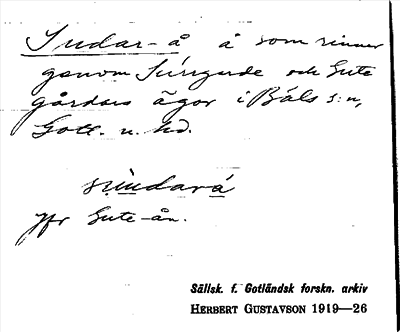 Sudar-å å som rinner
genom Suregarde och Gute
gårdars ägor i Bäls s:n,
Gotl. n. hd.
sùndará
Jfr Gute-ån.
Sällsk. f. Gotländsk forskn. arkiv
HERBERT GUSTAVSON 1919—26